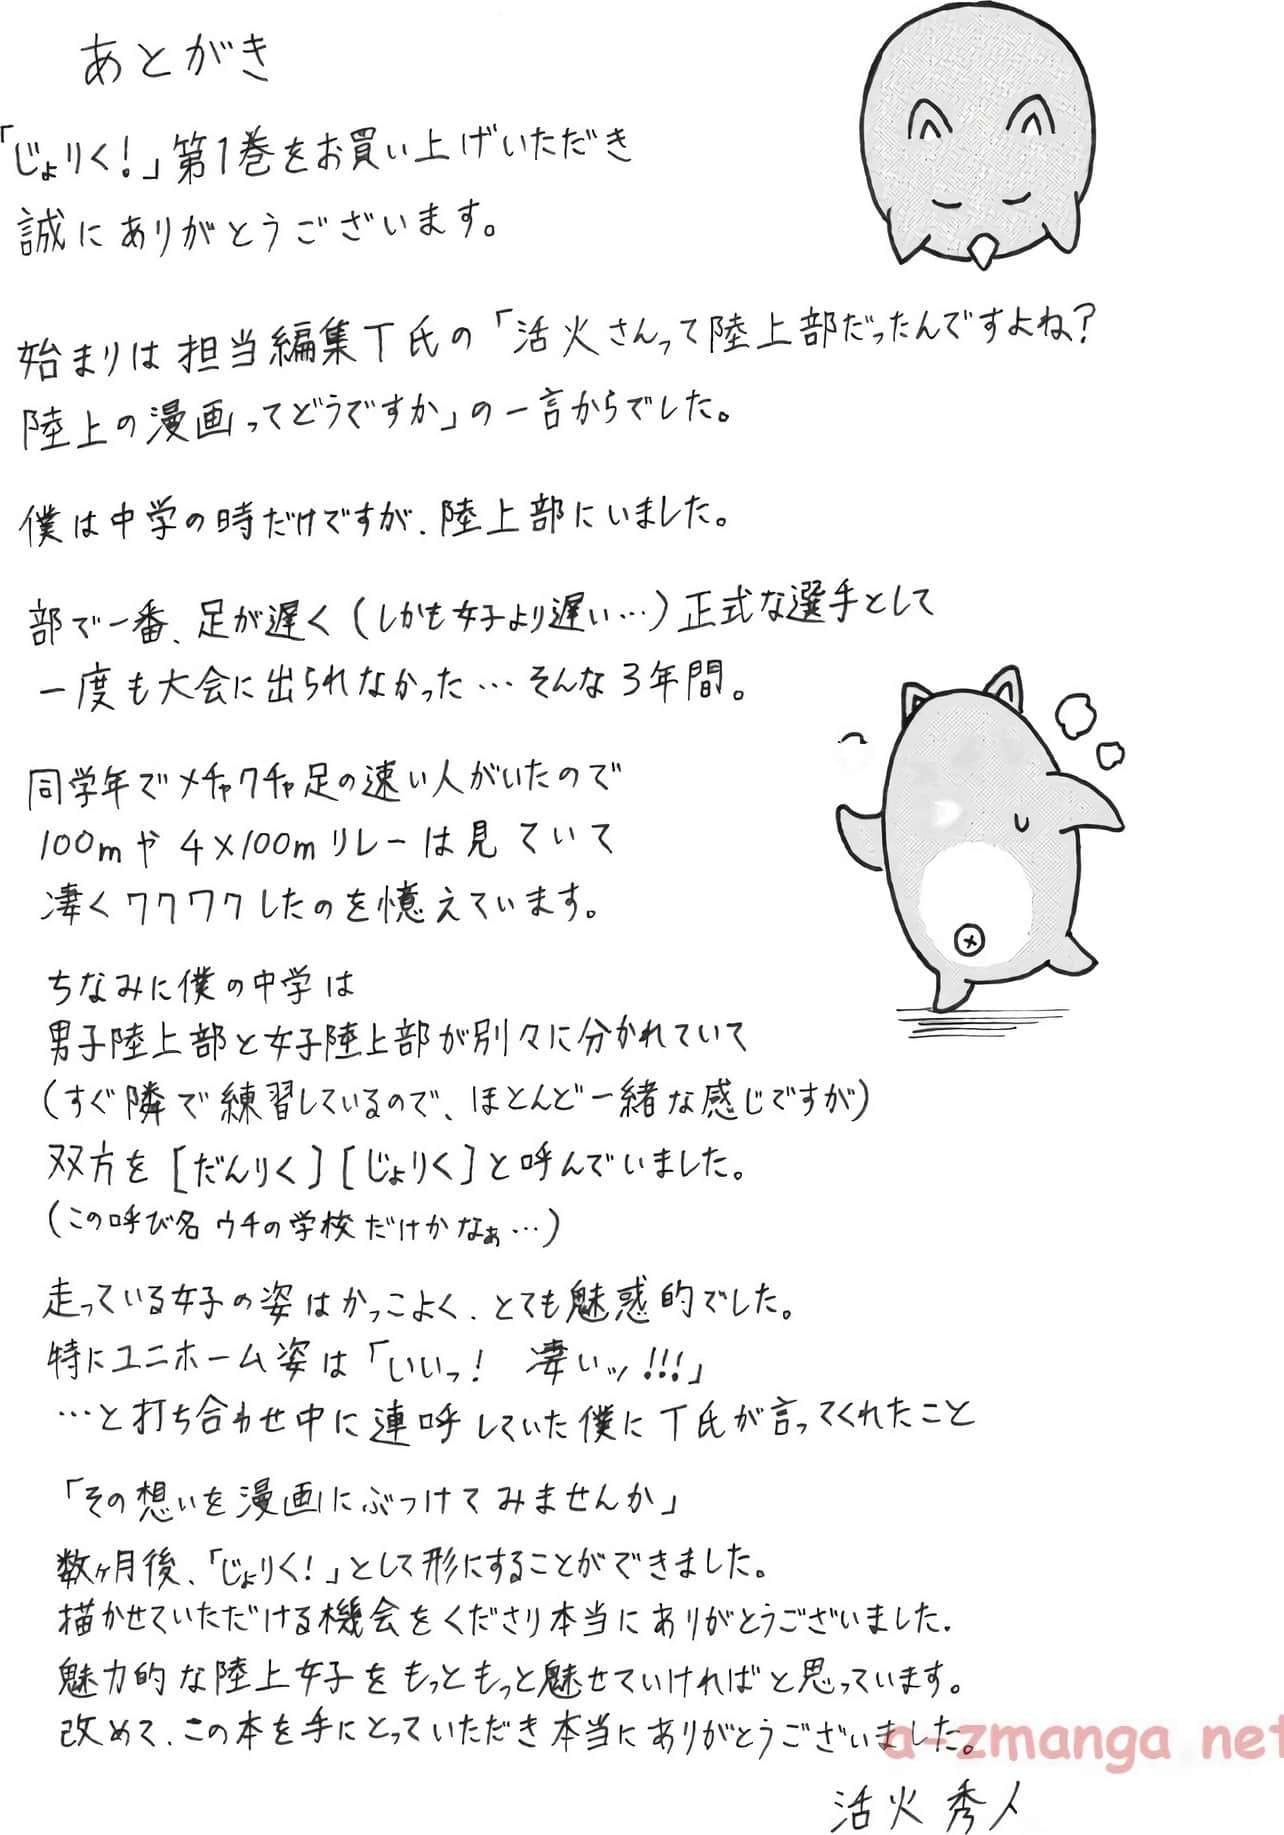 あとがき
「じょりく!」第1巻をお買い上げいただき
誠にありがとうございます。
始まりは担当編集T氏の「活火さんって陸上部だったんですよね?
陸上の漫画ってどうですか」の一言からでした。
僕は中学の時だけですが、陸上部にいました。
部で一番、足が遅く(しかも女子より遅い…)正式な選手として
一度も大会に出られなかった…そんな3年間。
同学年でメチャクチャ足の速い人がいたので
100mや4×100mリレーは見ていて
凄くワクワクしたのを憶えています。
ちなみに僕の中学は
男子陸上部と女子陸上部が別々に分かれていて
(すぐ隣で練習しているので、ほとんど一緒な感じですが)
双方を[だんりく][じょりく]と呼んでいました。
(この呼び名ウチの学校だけかなぁ…)
走っている女子の姿はかっこよく、とても魅惑的でした。
特にユニホーム姿は「いいっ! 凄いッ!!!」
…と打ち合わせ中に連呼していた僕にT氏が言ってくれたこと
「その想いを漫画にぶつけてみませんか」
数ヶ月後、「じょりく!」として形にすることができました。
描かせていただける機会をくださり本当にありがとうございました。
魅力的な陸上女子をもっともっと魅せていければと思っています。
改めて、この本を手にとっていただき本当にありがとうございました。
a-zmanga.net
活火秀人